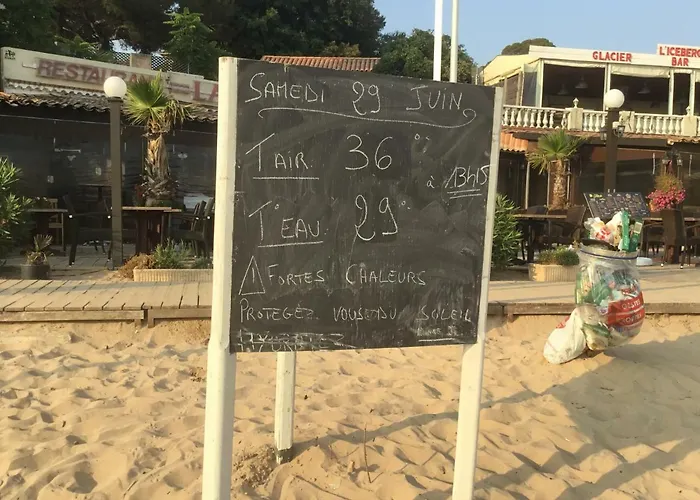 RESTAURANT
LA
GLACIER
L'ICEBERG
BAR
SAMEDI 29 JUIN
T°AIR 36° à 13H15
T°EAU 29°
⚠ FORTES CHALEURS
PROTEGEZ VOUS DU SOLEIL